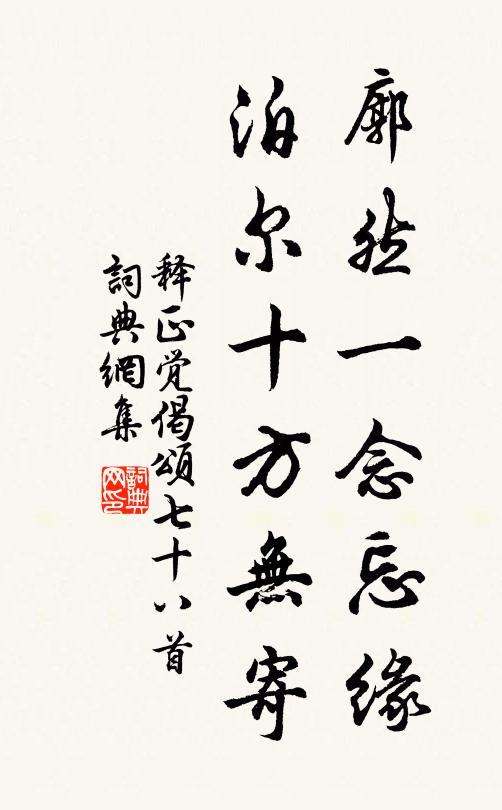 廓然一念忘緣
泊尔十方無寄
释正觉偈頌七十八首
詞典網集
詞典网印